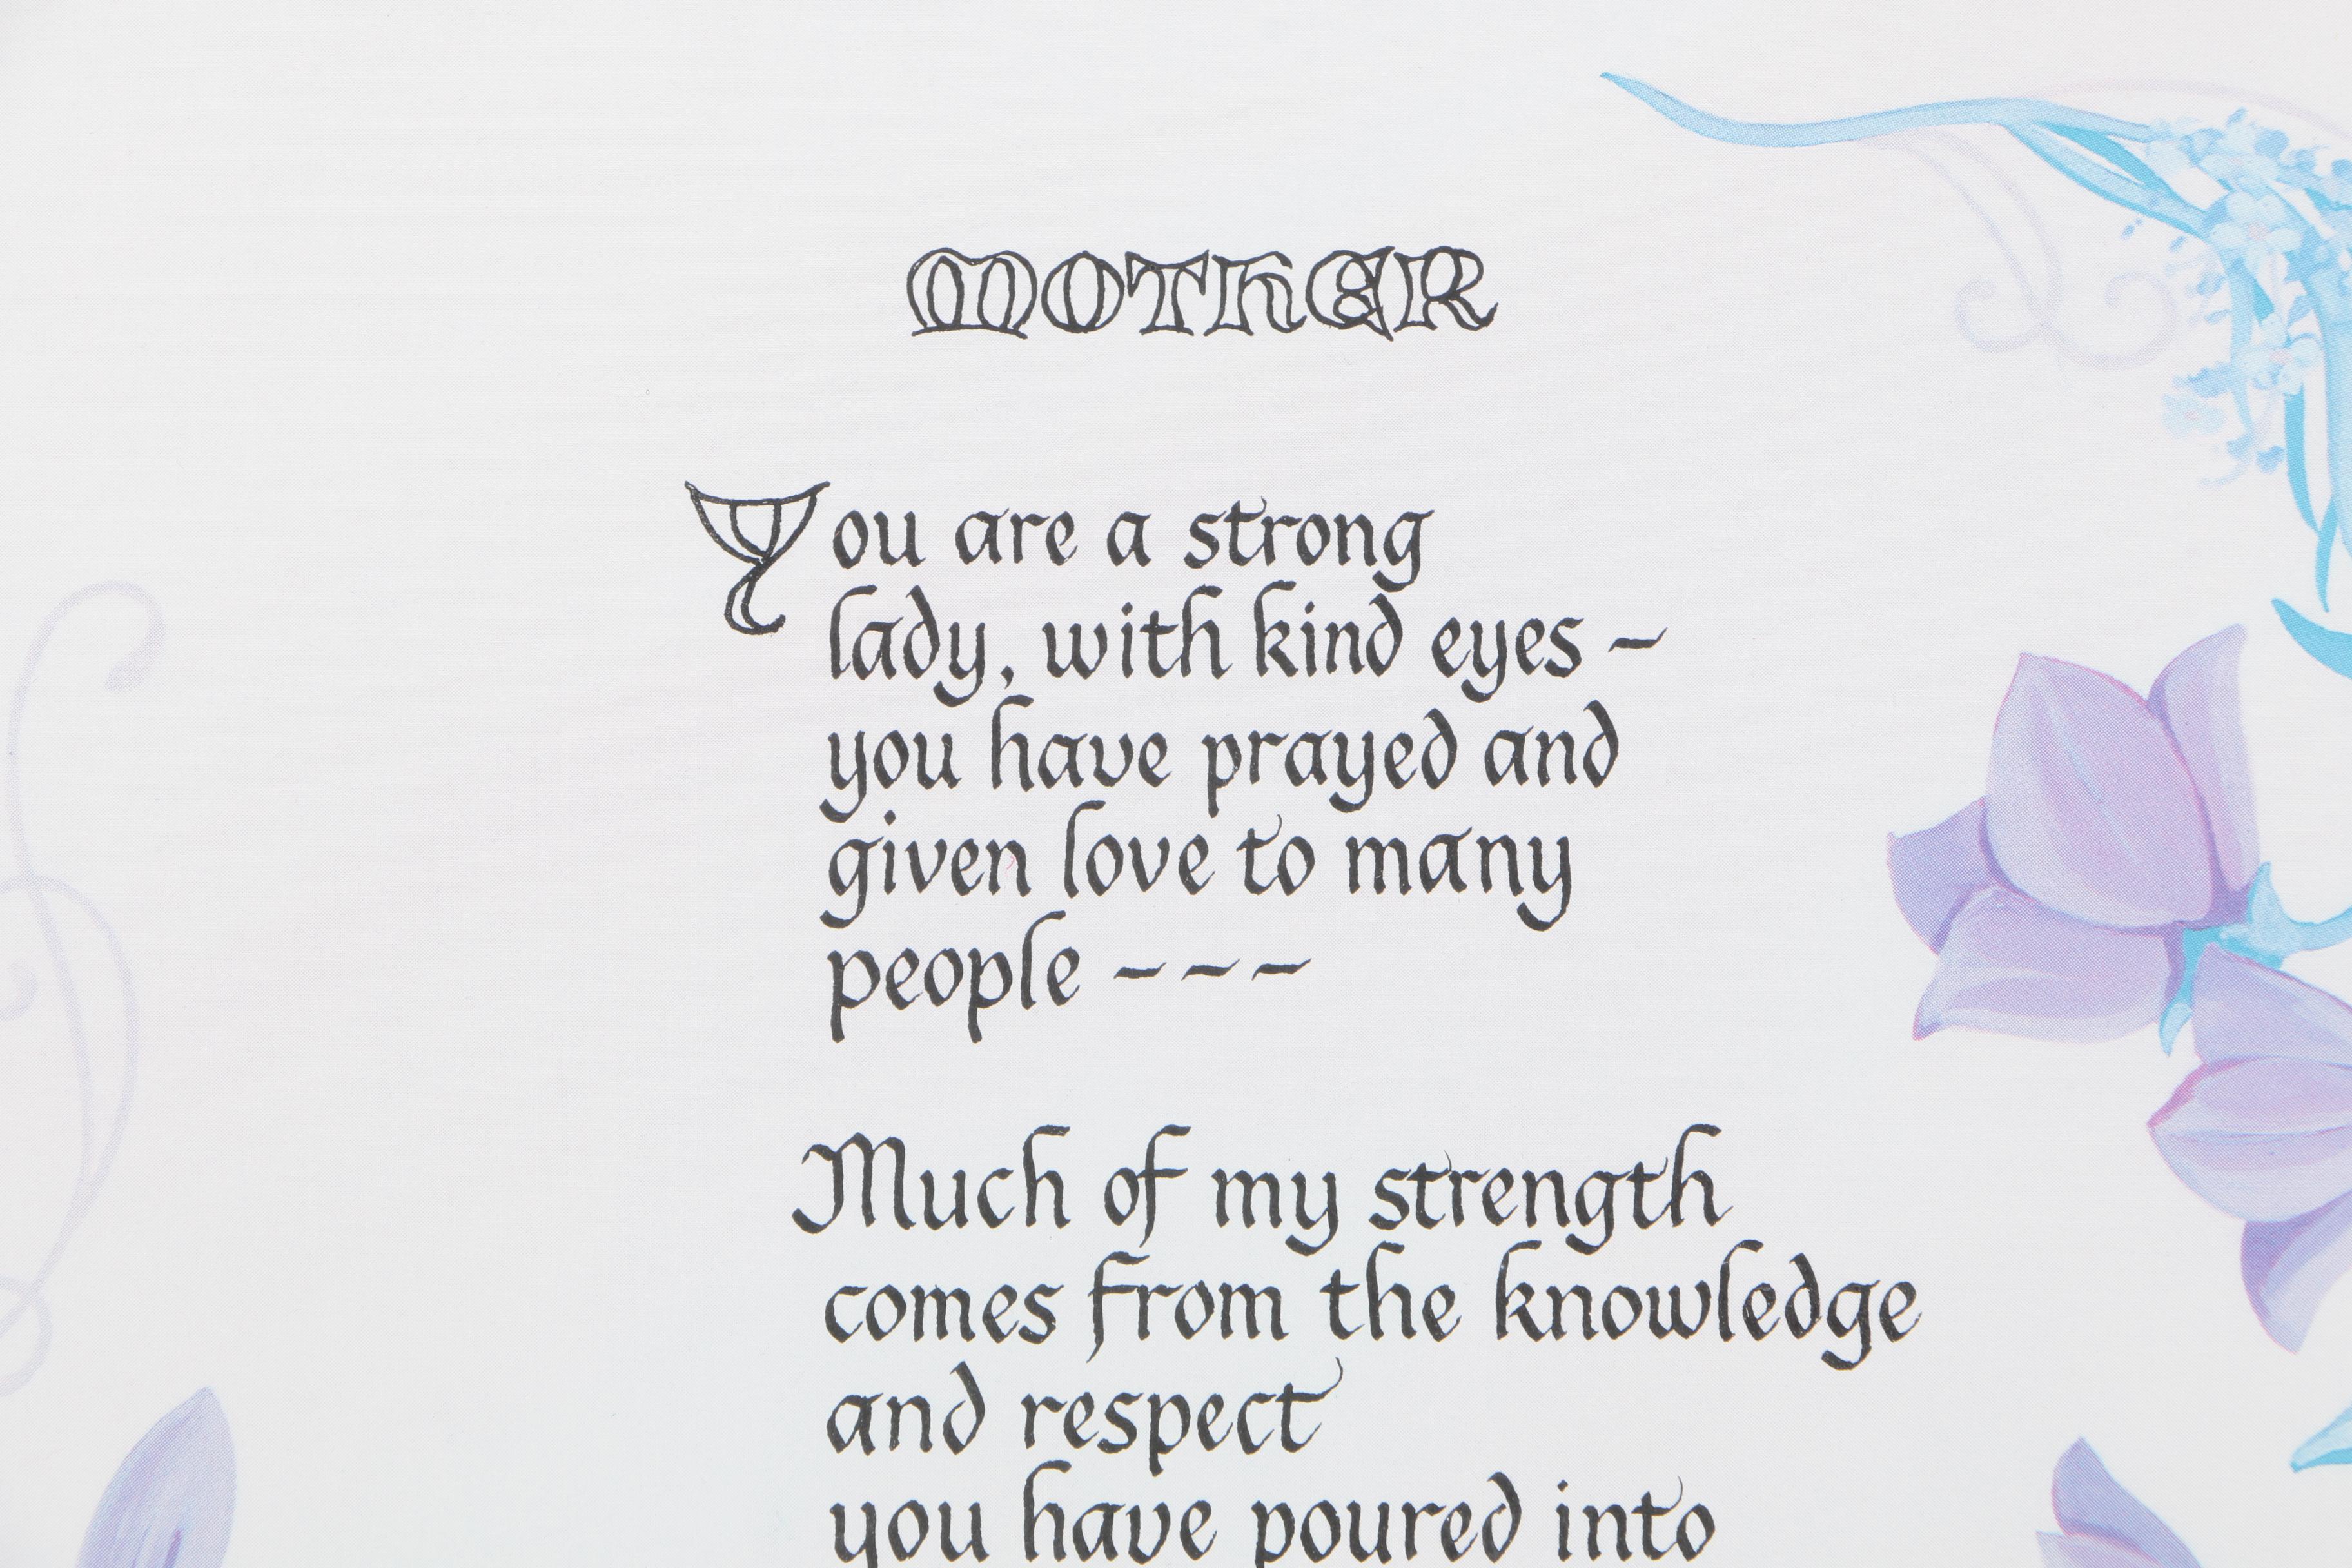 MOTHER
You are a strong
lady, with kind eyes –
you have prayed and
given love to many
people – – –
Much of my strength
comes from the knowledge
and respect
you have poured into